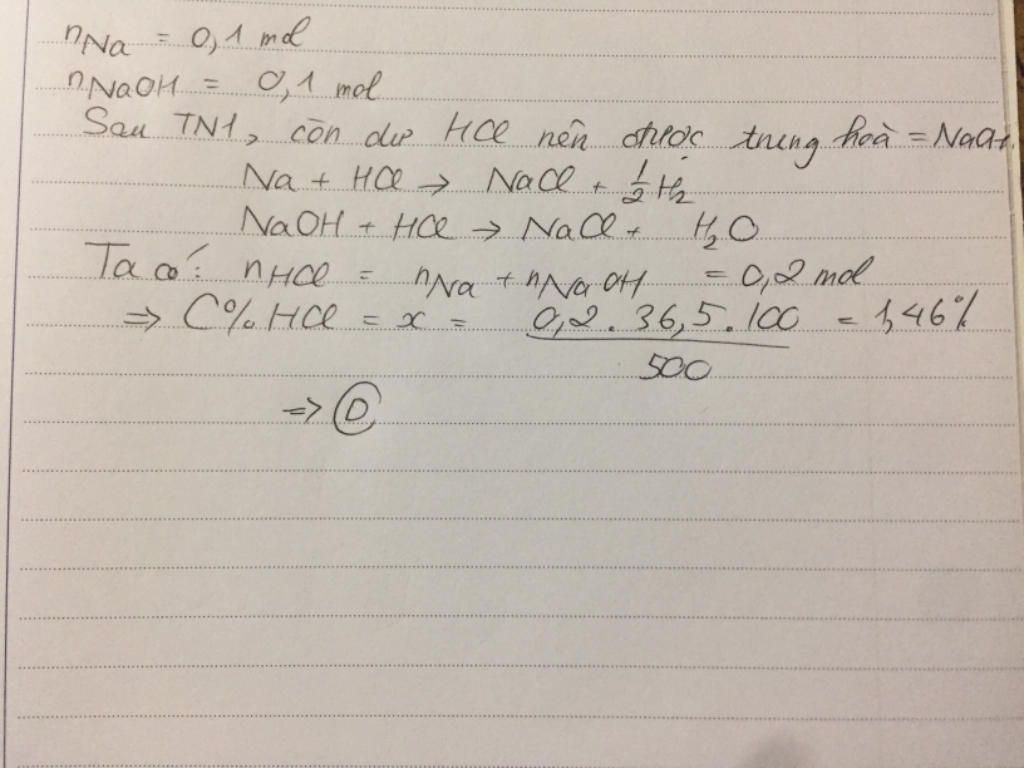 nNa = 0,1 mol
nNaOH = 0,1 mol
Sau TN1, còn dư HCl nên được trung hoà = NaOH.
Na + HCl → NaCl + 1/2 H2
NaOH + HCl → NaCl + H2O
Ta có: nHCl = nNa + nNaOH = 0,2 mol
⇒ C% HCl = x = 0,2 . 36,5 . 100 / 500 = 1,46%
⇒ D